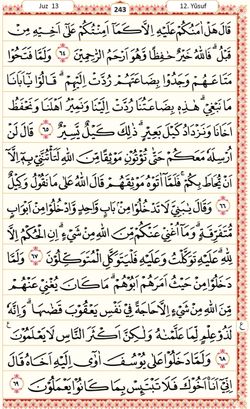 Juz 13
243
12. Yūsuf
قَالَ هَلْ اٰمَنُكُمْ عَلَيْهِ اِلَّا كَمَاۤ اَمِنْتُكُمْ عَلٰۤى اَخِيْهِ مِنْ
قَبْلُ ؕ فَاللّٰهُ خَيْرٌ حٰفِظًا وَّهُوَ اَرْحَمُ الرّٰحِمِيْنَ ﴿٦٤﴾ وَلَمَّا فَتَحُوْا
مَتَاعَهُمْ وَجَدُوْا بِضَاعَتَهُمْ رُدَّتْ اِلَيْهِمْ ؕ قَالُوْا يٰۤاَبَانَا
مَا نَبْغِيْ ؕ هٰذِهٖ بِضَاعَتُنَا رُدَّتْ اِلَيْنَا ۚ وَنَمِيْرُ اَهْلَنَا وَنَحْفَظُ
اَخَانَا وَنَزْدَادُ كَيْلَ بَعِيْرٍ ؕ ذٰلِكَ كَيْلٌ يَّسِيْرٌ ﴿٦٥﴾ قَالَ لَنْ
اُرْسِلَهٗ مَعَكُمْ حَتّٰى تُؤْتُوْنِ مَوْثِقًا مِّنَ اللّٰهِ لَتَاْتُنَّنِيْ بِهٖۤ اِلَّاۤ
اَنْ يُّحَاطَ بِكُمْ ۚ فَلَمَّاۤ اٰتَوْهُ مَوْثِقَهُمْ قَالَ اللّٰهُ عَلٰى مَا نَقُوْلُ وَكِيْلٌ
﴿٦٦﴾ وَقَالَ يٰبَنِيَّ لَا تَدْخُلُوْا مِنْۢ بَابٍ وَّاحِدٍ وَّادْخُلُوْا مِنْ اَبْوَابٍ
مُّتَفَرِّقَةٍ ؕ وَمَاۤ اُغْنِيْ عَنْكُمْ مِّنَ اللّٰهِ مِنْ شَيْءٍ ؕ اِنِ الْحُكْمُ اِلَّا
لِلّٰهِ ؕ عَلَيْهِ تَوَكَّلْتُ ۚ وَعَلَيْهِ فَلْيَتَوَكَّلِ الْمُتَوَكِّلُوْنَ ﴿٦٧﴾ وَلَمَّا
دَخَلُوْا مِنْ حَيْثُ اَمَرَهُمْ اَبُوْهُمْ ؕ مَا كَانَ يُغْنِيْ عَنْهُمْ
مِّنَ اللّٰهِ مِنْ شَيْءٍ اِلَّا حَاجَةً فِيْ نَفْسِ يَعْقُوْبَ قَضٰىهَا ؕ وَاِنَّهٗ
لَذُوْ عِلْمٍ لِّمَا عَلَّمْنٰهُ وَلٰكِنَّ اَكْثَرَ النَّاسِ لَا يَعْلَمُوْنَ
﴿٦٨﴾ وَلَمَّا دَخَلُوْا عَلٰى يُوْسُفَ اٰوٰۤى اِلَيْهِ اَخَاهُ قَالَ
اِنِّيْۤ اَنَا اَخُوْكَ فَلَا تَبْتَئِسْ بِمَا كَانُوْا يَعْمَلُوْنَ ﴿٦٩﴾